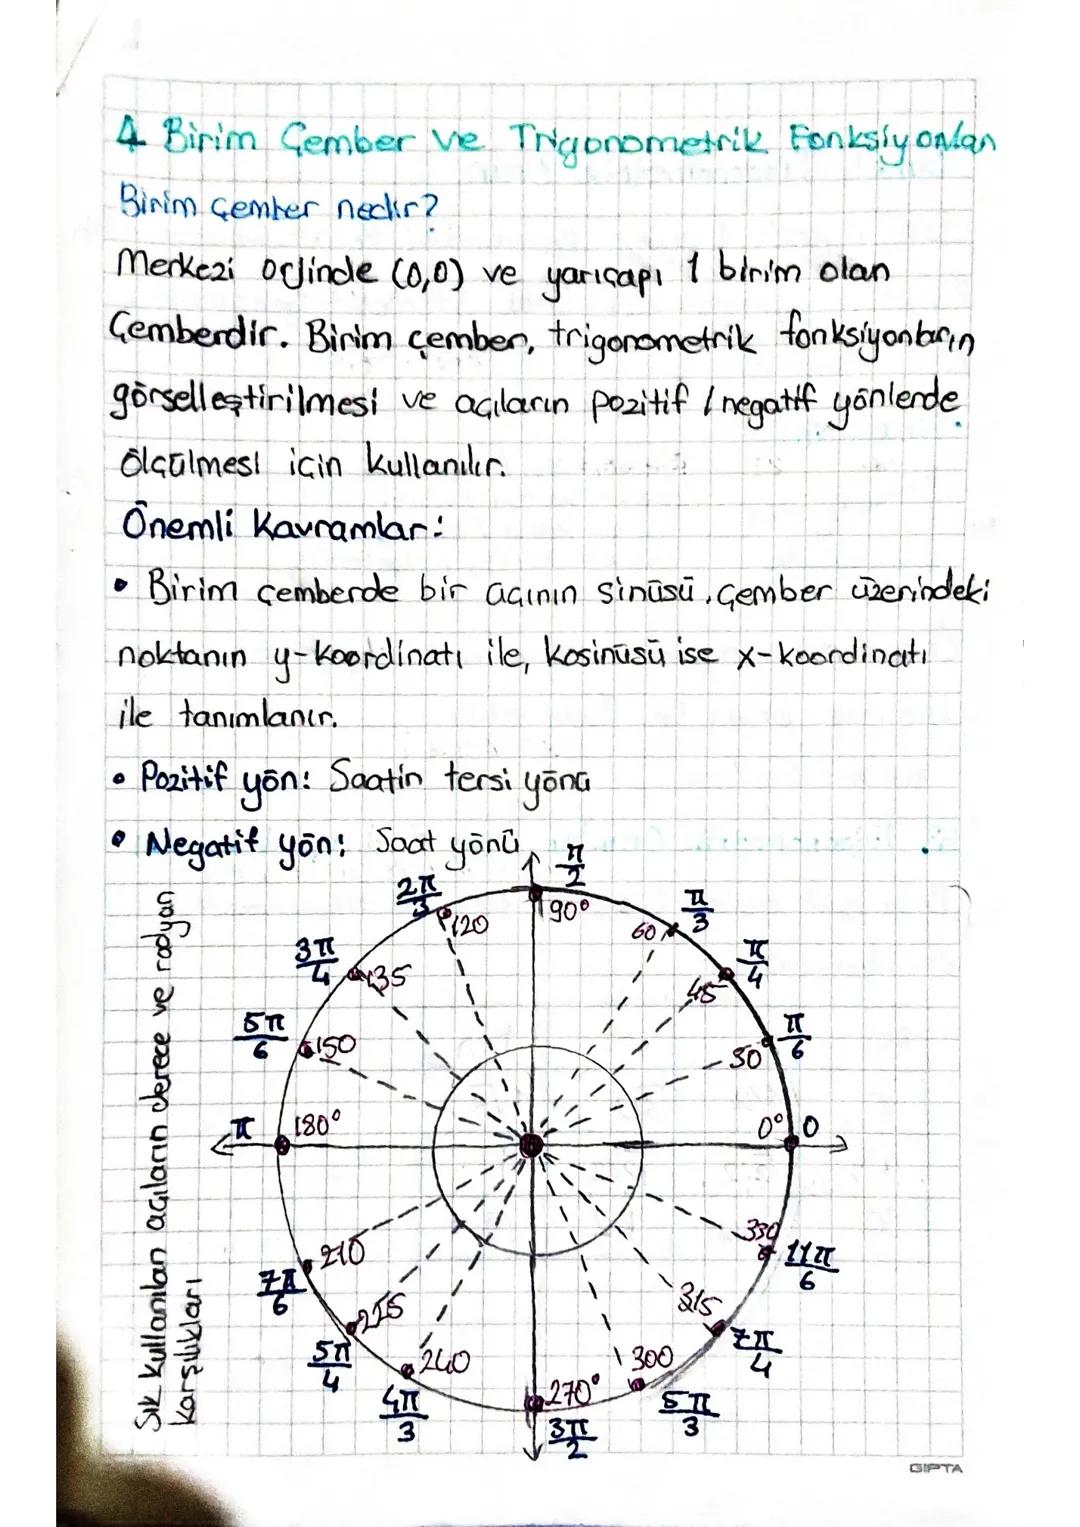 4 Birim Çember ve Trigonometrik Fonksiyonları
Birim çember nedir?
Merkezi orjinde (0,0) ve yarıçapı 1 birim olan
Çemberdir. Birim çember, trigonometrik fonksiyonların
görselleştirilmesi ve açıların pozitif / negatif yönlerde
ölçülmesi için kullanılır.
Önemli Kavramlar:
• Birim çemberde bir açının sinüsü, çember üzerindeki
noktanın y-koordinatı ile, kosinüsü ise x-koordinatı
ile tanımlanır.
• Pozitif yön: Saatin tersi yönü
• Negatif yön: Saat yönü
Sık kullanılan açıların derece ve radyan
karşılıkları
π/2
90°
2π/3
120
60
π/3
3π/4
135
45
π/4
5π/6
150
30
π/6
π
180°
0°
0
210
7π/6
330
11π/6
225
5π/4
315
7π/4
240
4π/3
270°
3π/2
300
5π/3
GIPTA